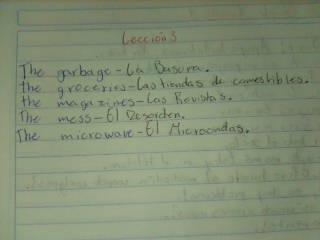 Lección 3
The garbage - La Basura.
the groceries - Las tiendas de comestibles.
the magazines - Las Revistas.
The mess - El Desorden.
The microwave - El Microondas.